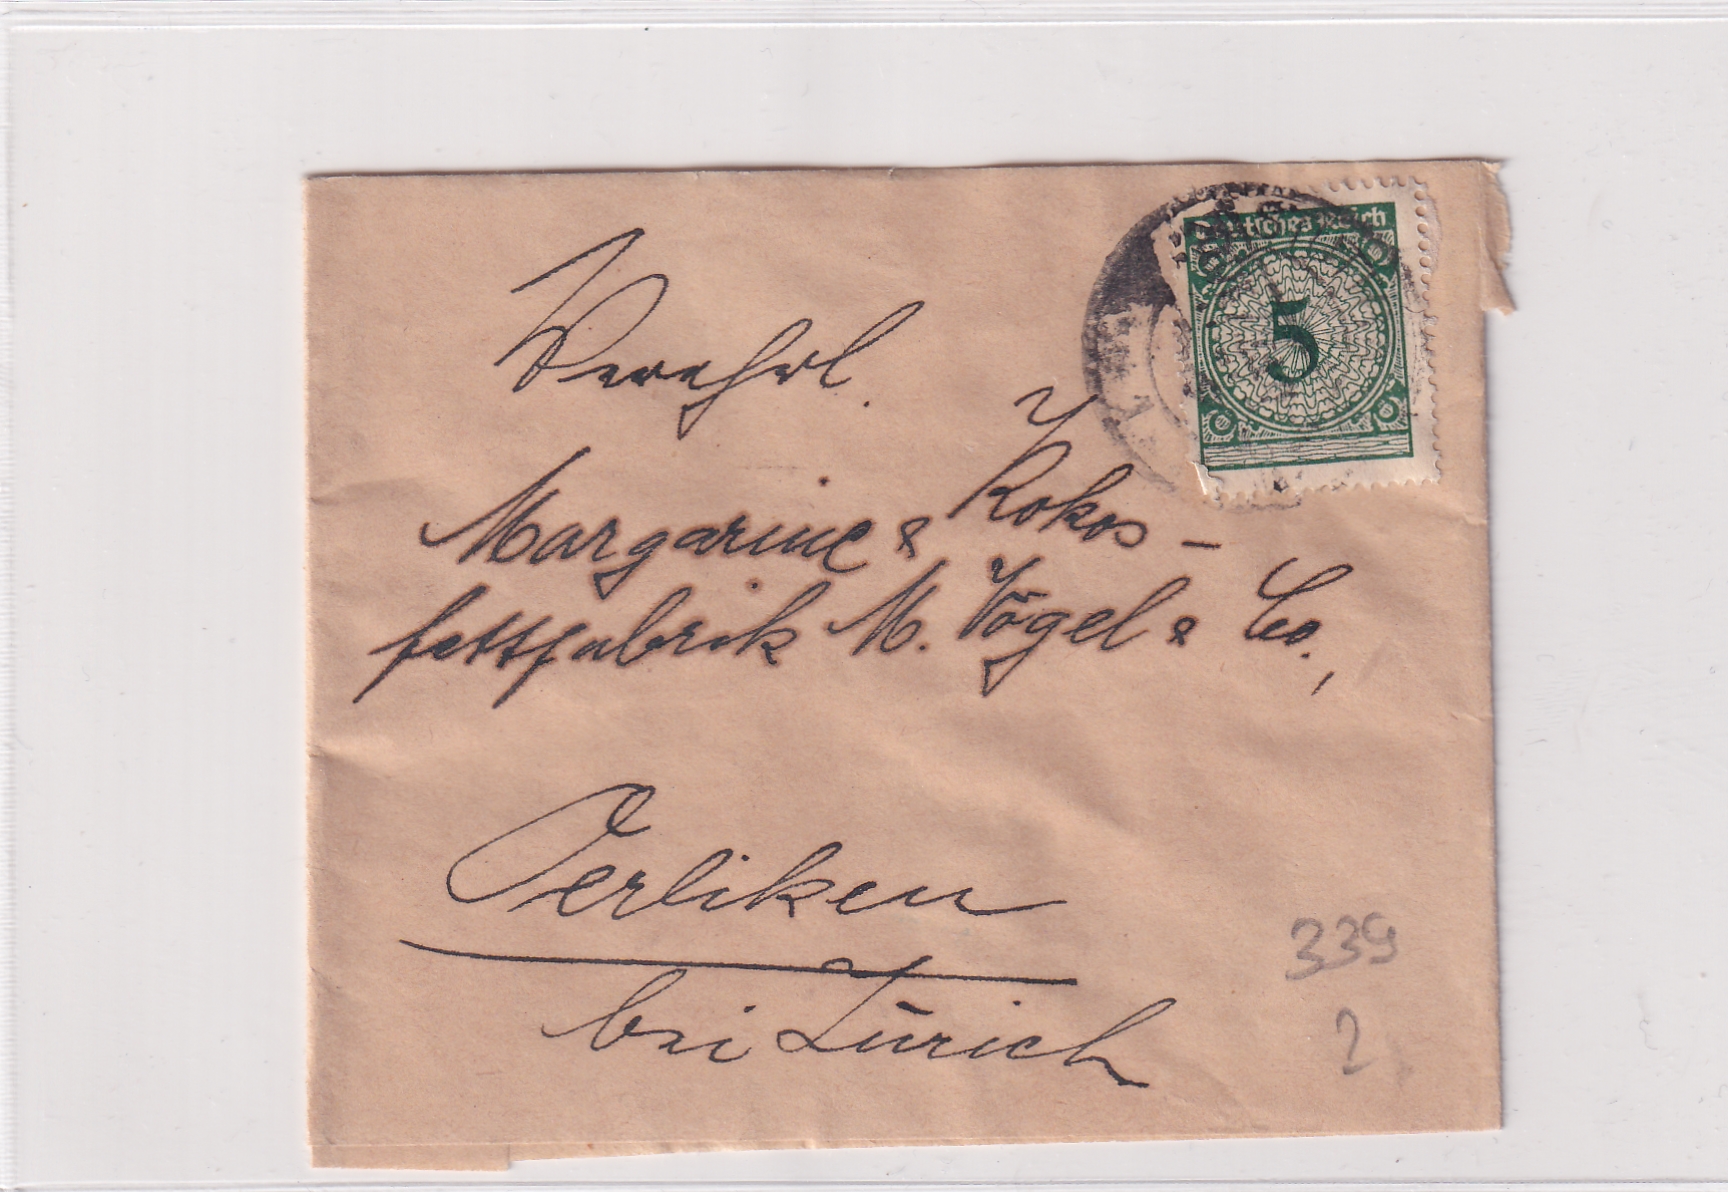 Deutsches Reich
5
Verehrl.
Margarine & Kokos-
fettfabrik M. Vögel & Co.,
Oerliken
bei Zürich
339
2